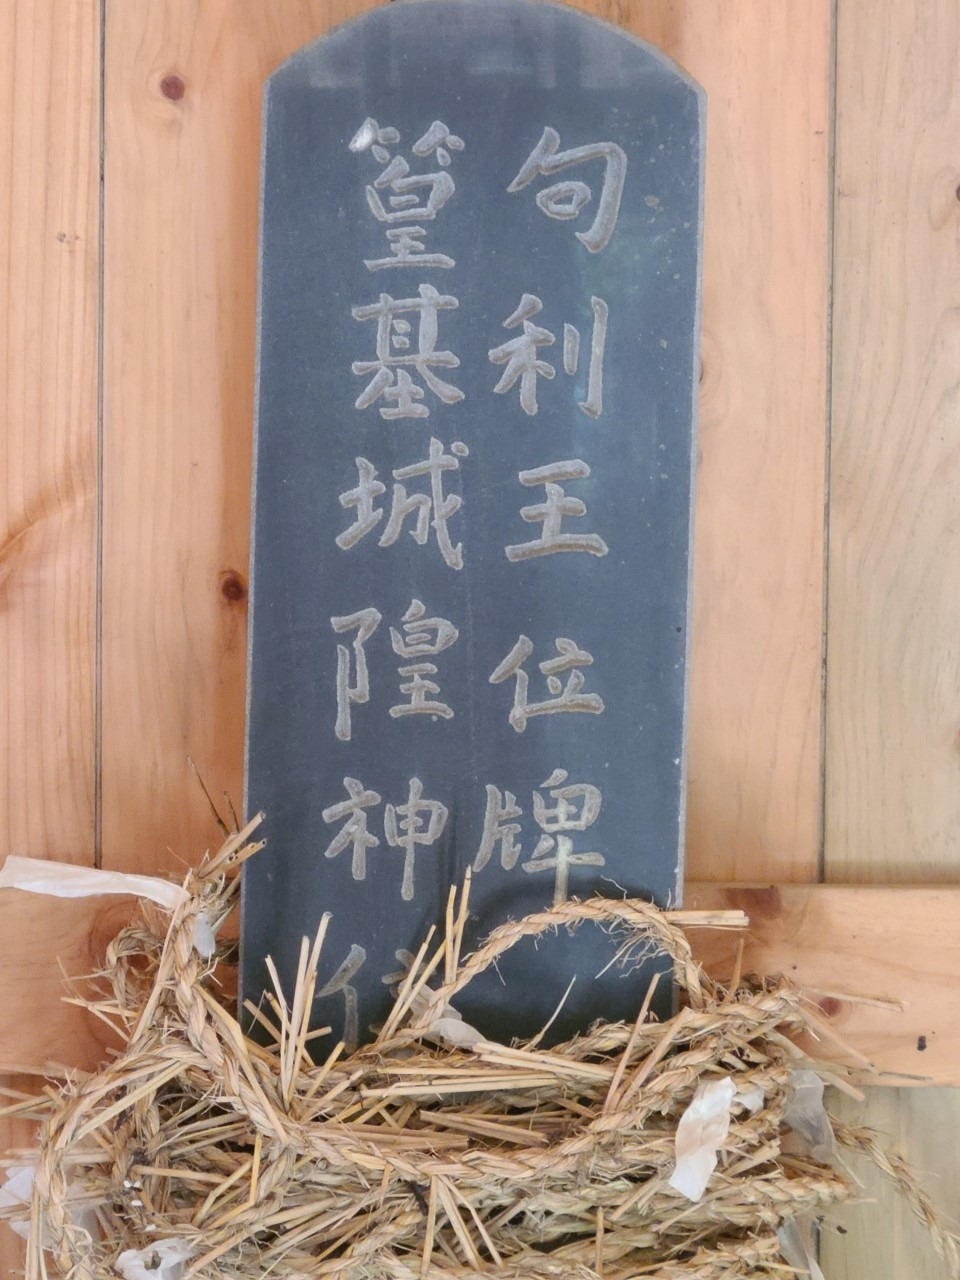 句利王位牌
篁基城隍神位